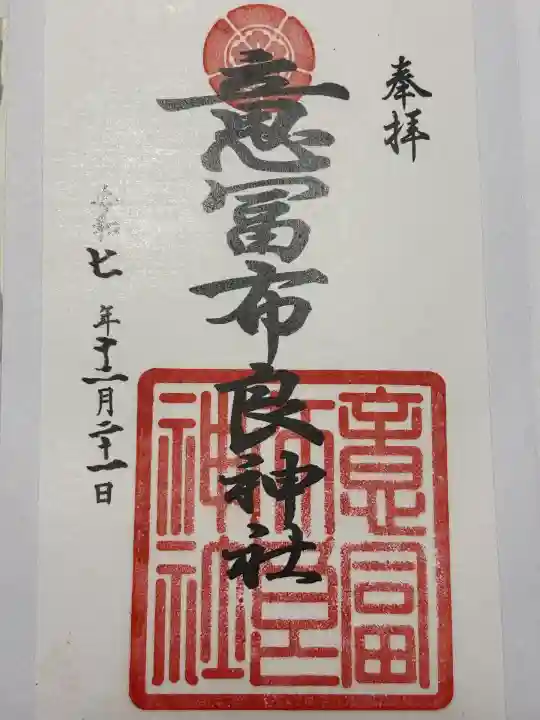 奉拝
意冨布良神社
意冨
布良
神社
令和七年十二月二十一日